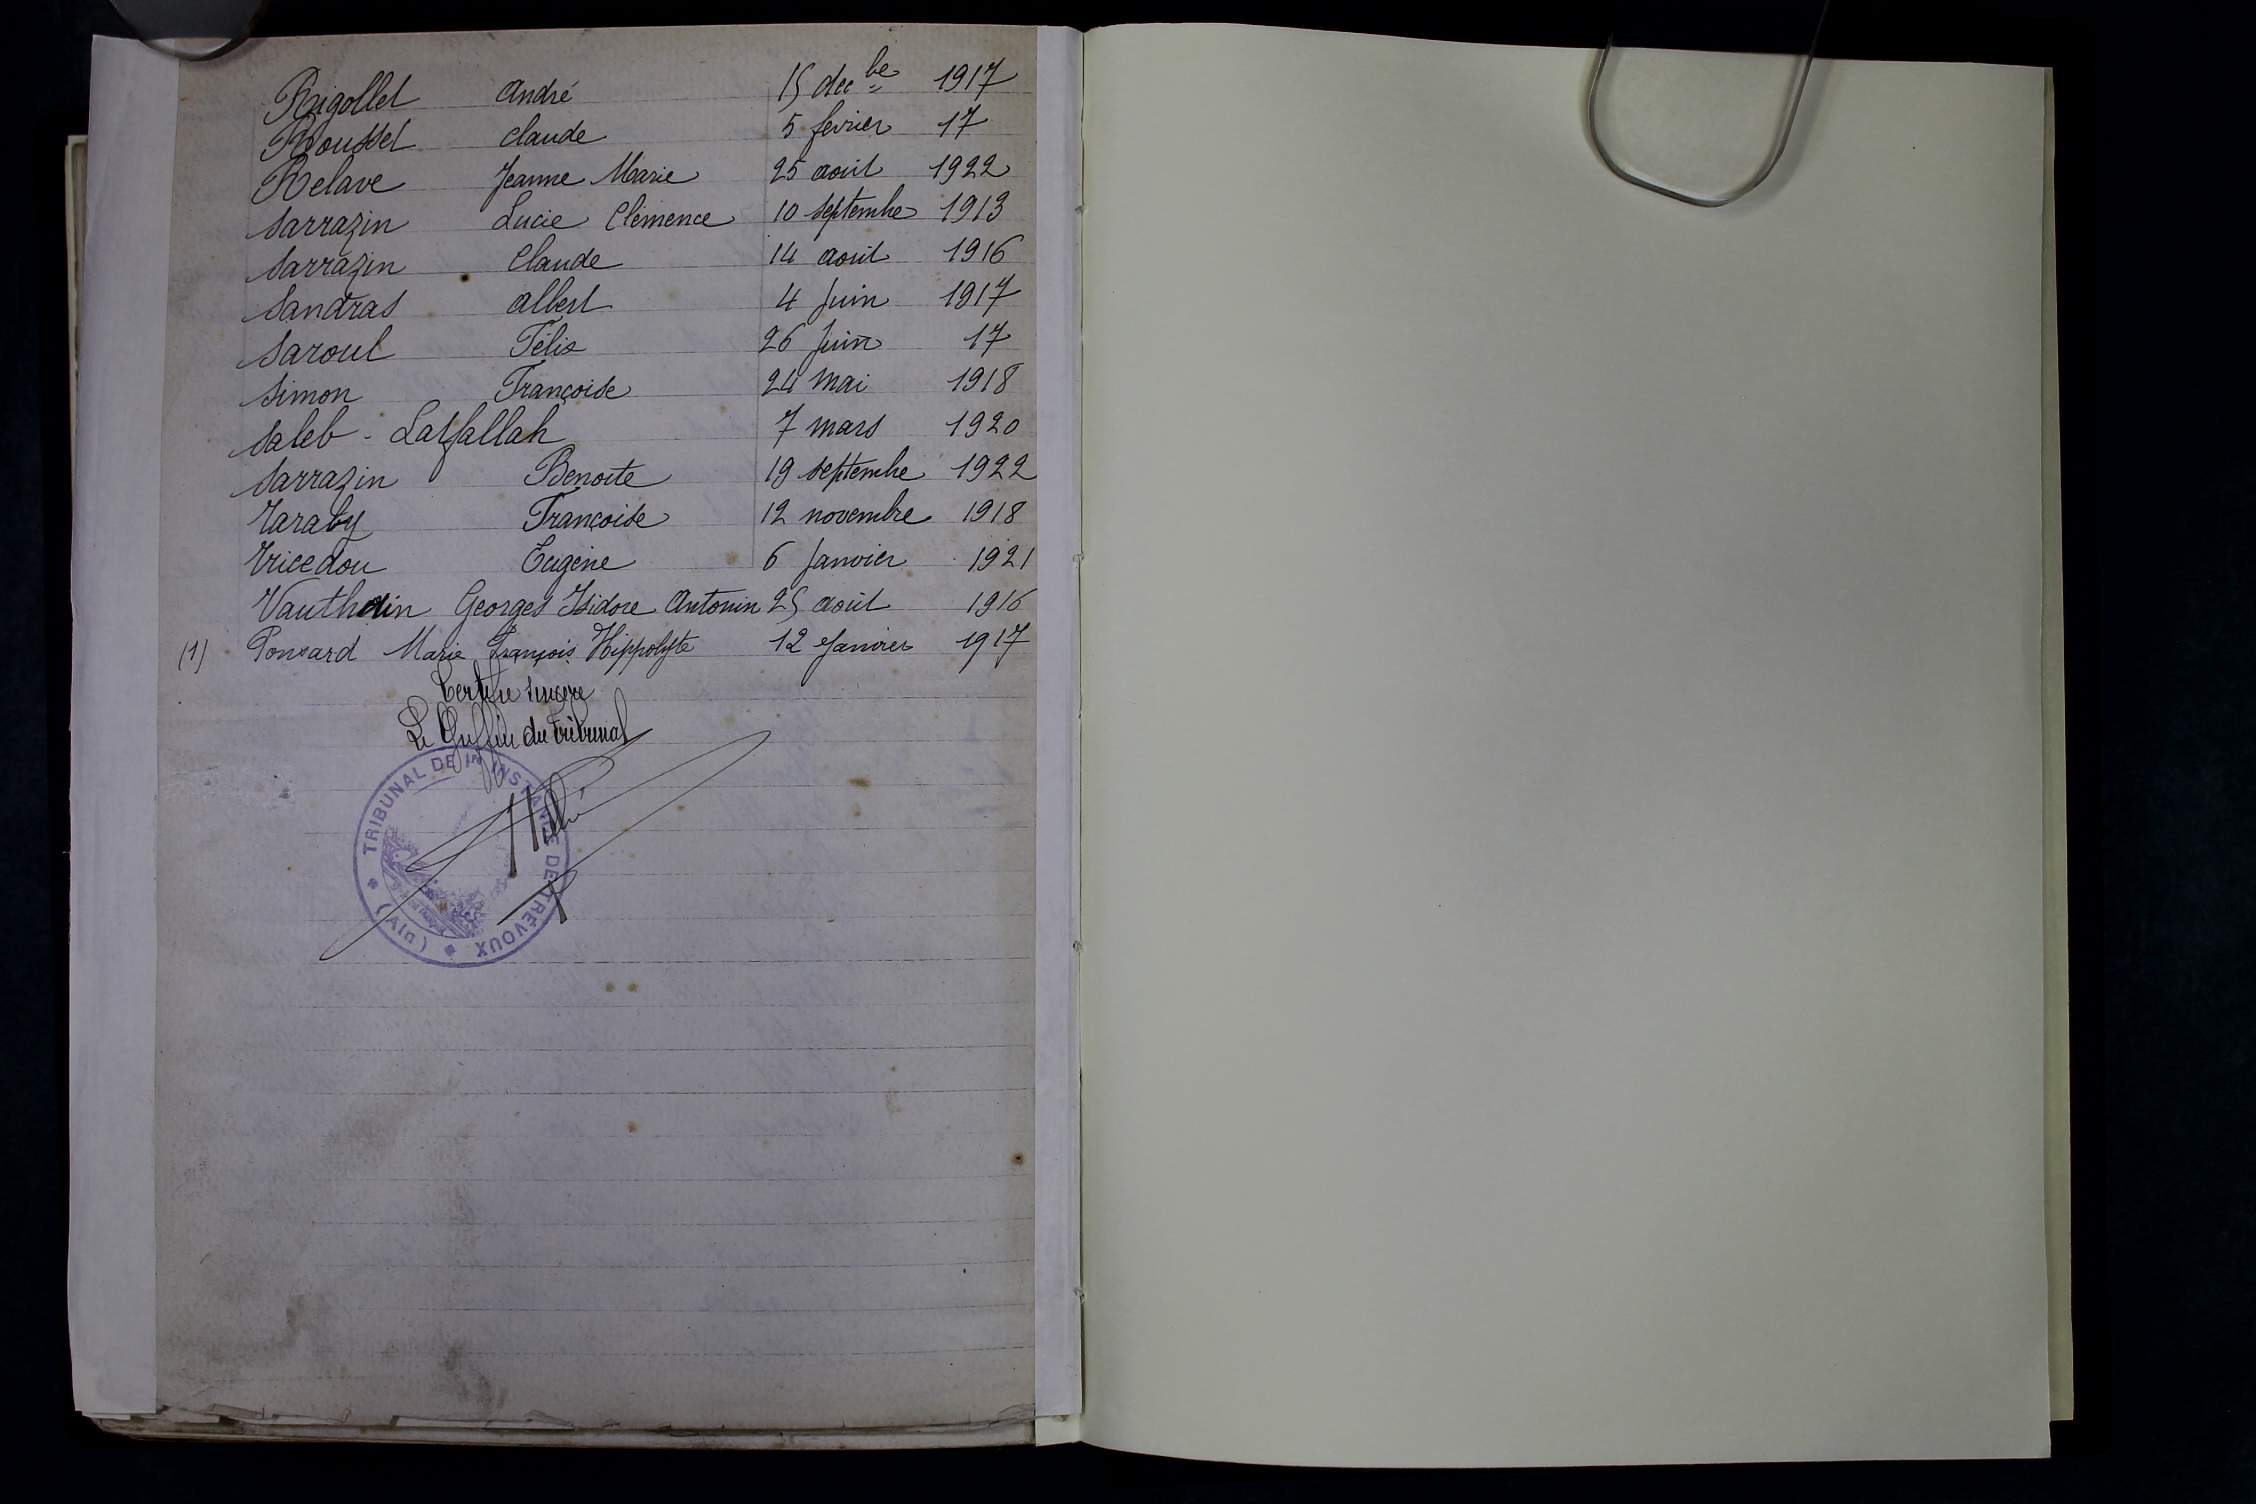 Rigollet André 15 decbe 1917
Roussel Claude 5 février 17
Relave Jeanne Marie 25 août 1922
Sarrazin Lucie Clémence 10 septembre 1913
Sarrazin Claude 14 août 1916
Sandras Albert 4 Juin 1917
Saroul Félix 26 Juin 17
Simon Françoise 24 Mai 1918
Saleb - Latfallah 7 mars 1920
Sarrazin Benoite 19 septembre 1922
Taraby Françoise 12 novembre 1918
Tricedou Eugène 6 Janvier 1921
Vauthrin Georges Isidore Antonin 25 août 1916
(1) Ponsard Marie François Hippolyte 12 Janvier 1917
Certifié sincère
Le Greffier du Tribunal
TRIBUNAL DE 1re INSTANCE DE TRÉVOUX
(Ain)